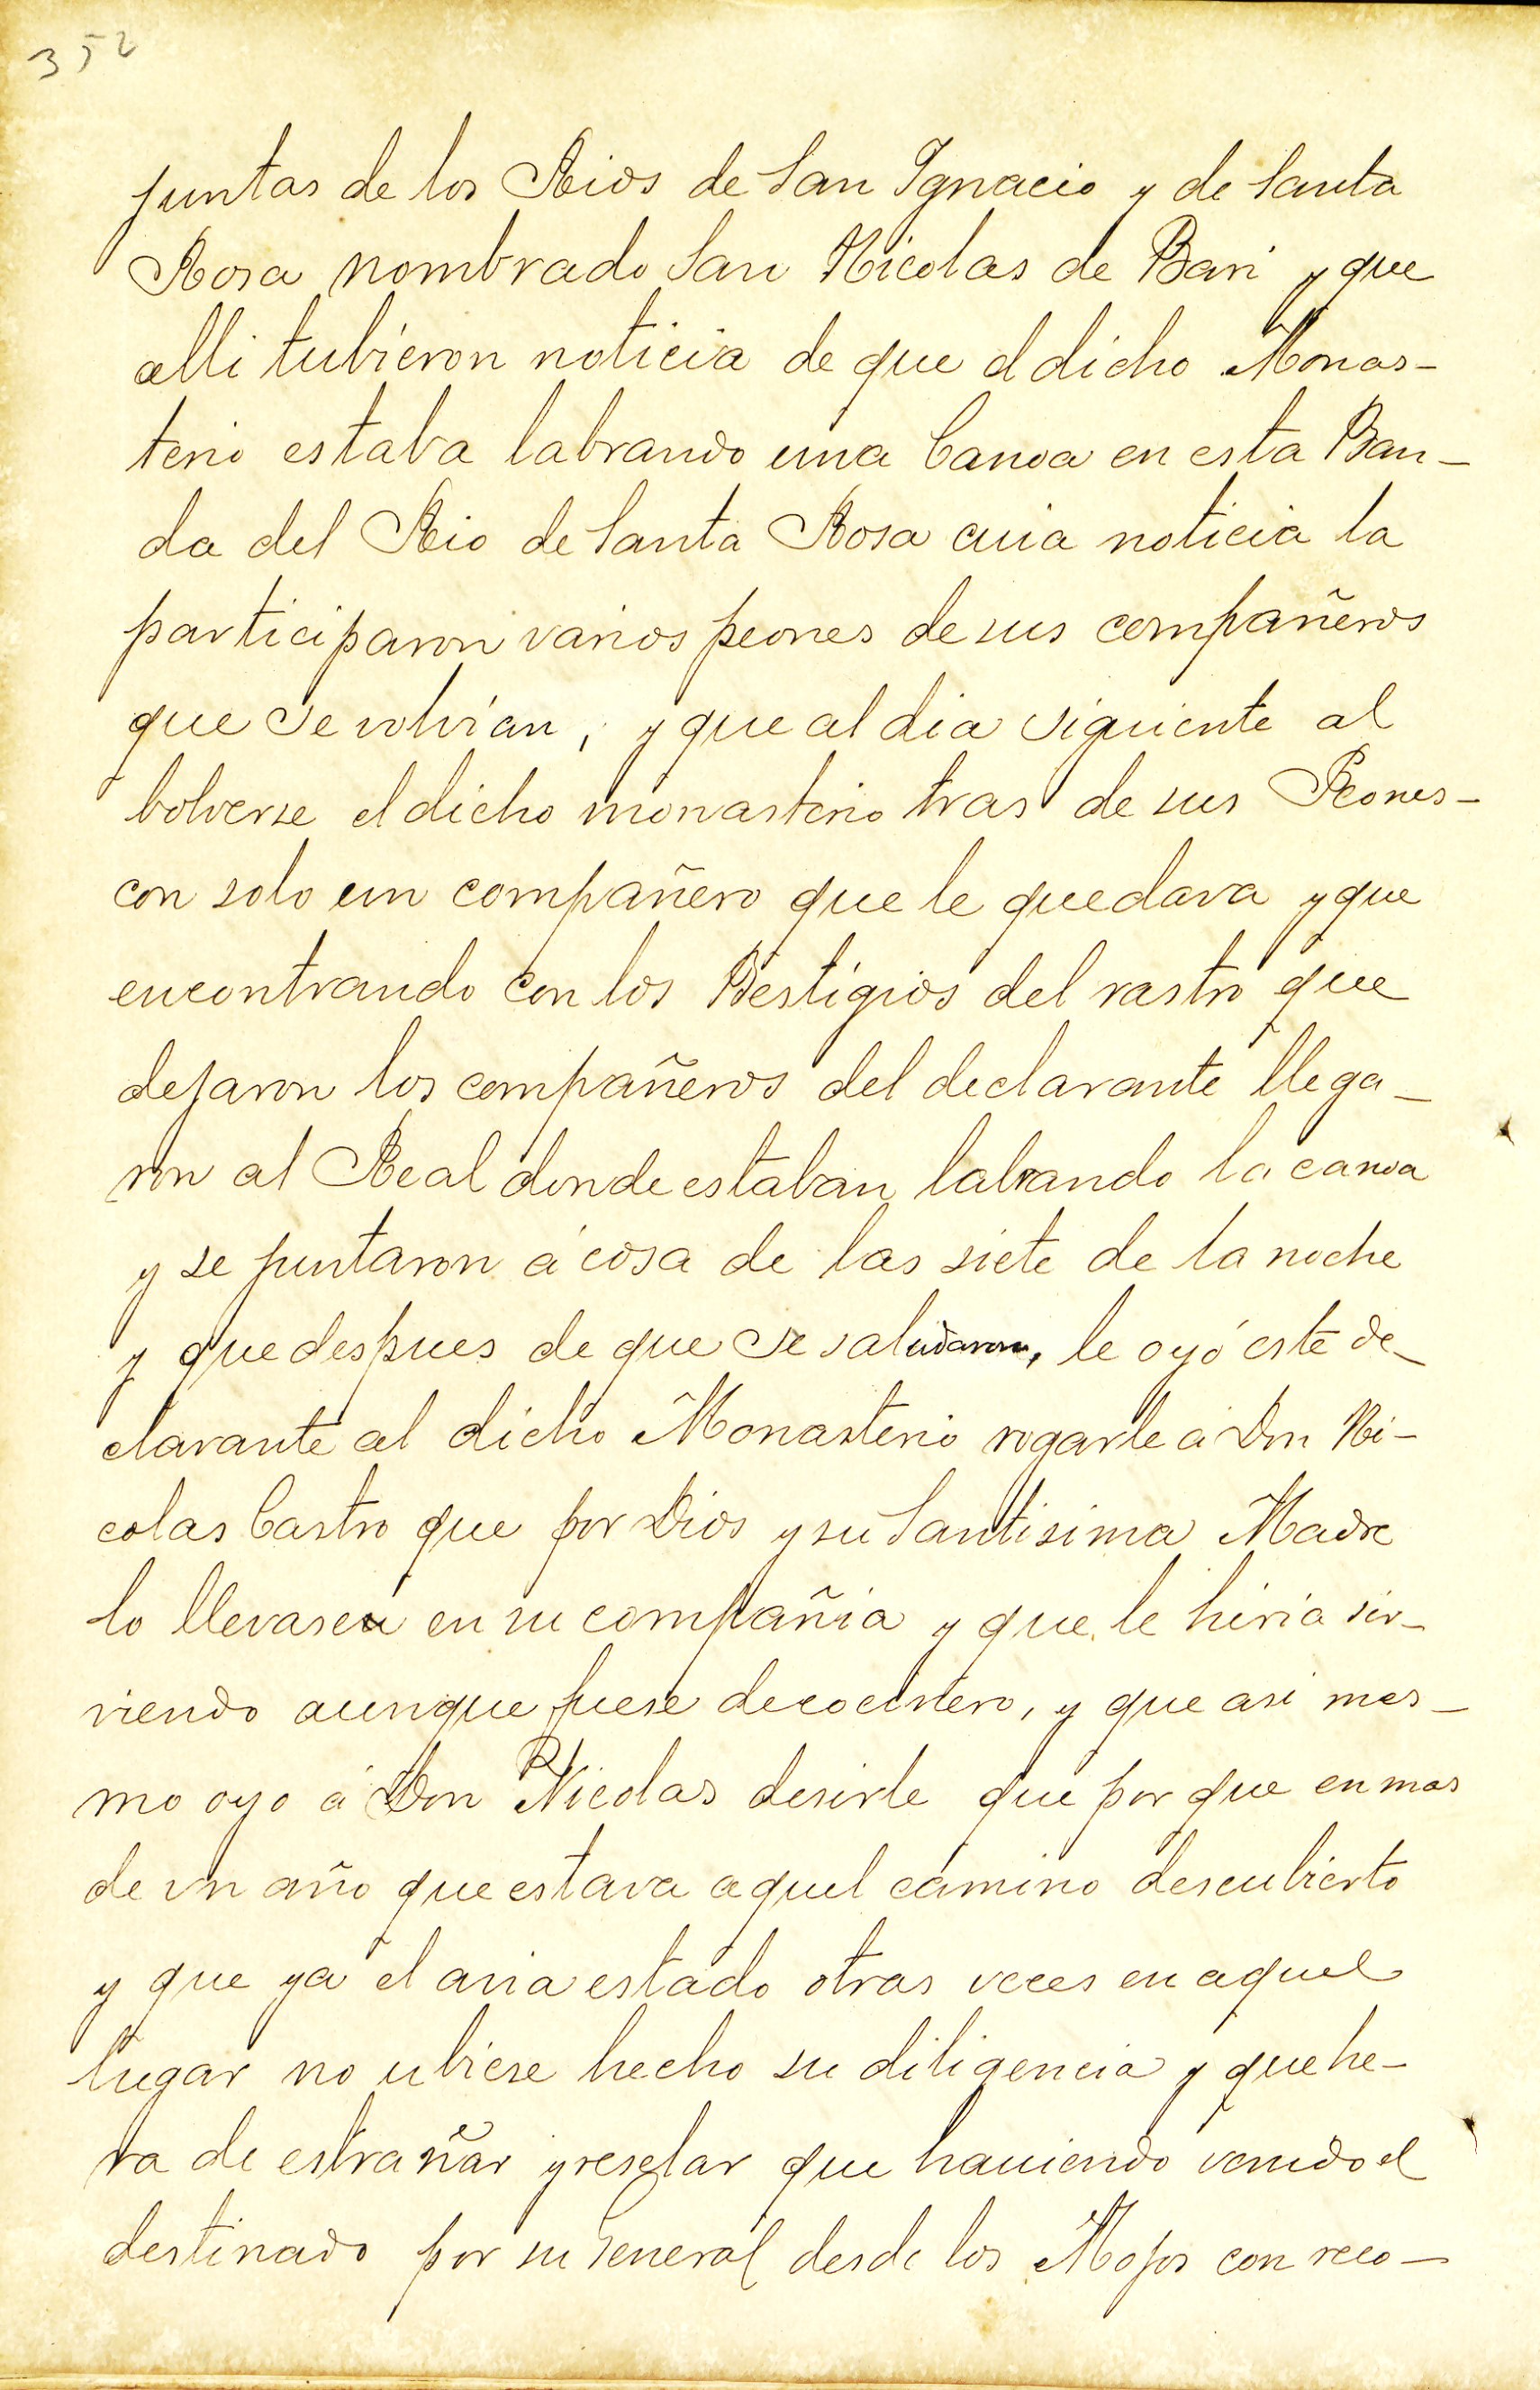 352
juntas de los Rios de San Ignacio y de Santa
Rosa nombrado San Nicolas de Bari y que
alli tubieron noticia de que el dicho Monas-
terio estaba labrando una Canoa en esta Ban-
da del Rio de Santa Rosa cuia noticia la
participaron varios peones de sus compañeros
que se volvian, y que al dia siguiente al
bolverse el dicho monasterio tras de sus Peones-
con solo un compañero que le quedava y que
encontrando con los Bestigios del rastro que
dejaron los compañeros del declarante llega-
ron al Real donde estaban labrando la canoa
y se juntaron á cosa de las siete de la noche
y que despues de que se saludaron, le oyó este de-
clarante al dicho Monasterio rogarle a Don Ni-
colas Castro que por Dios y su Santisima Madre
lo llevasen en su compañia y que le hiria sir-
viendo aunque fuese de cocinero, y que asi mes-
mo oyo á Don Nicolas desirle que por que en mas
de un año que estava aquel camino descubierto
y que ya el avia estado otras veces en aquel
lugar no ubiese hecho su diligencia y que he-
ra de estrañar y reselar que haviendo venido el
destinado por su General desde los Mojos con reco-